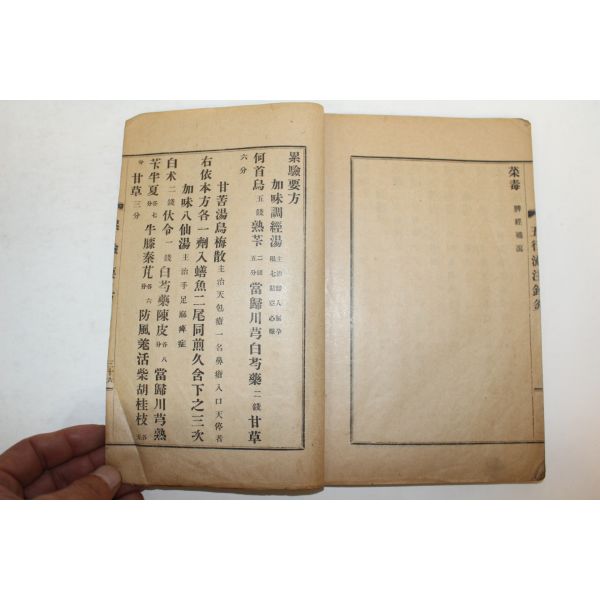 菜毒
累驗要方
加味調經湯
何首烏 五錢 熟芐 二錢五分 當歸川芎白芍藥 二錢 甘草
六分
甘苦湯烏梅散 主治天包瘡一名鼻瘡入口天停者
右依本方各一劑入鱔魚二尾同煎久含下之三次
加味八仙湯 主治手足麻痺症
白朮 二錢 伏令 一錢 白芍藥陳皮 各八分 當歸川芎熟
芐半夏 各七分 牛膝秦艽 各六分 防風羗活柴胡桂枝 各五
分 甘草 三分
三十六